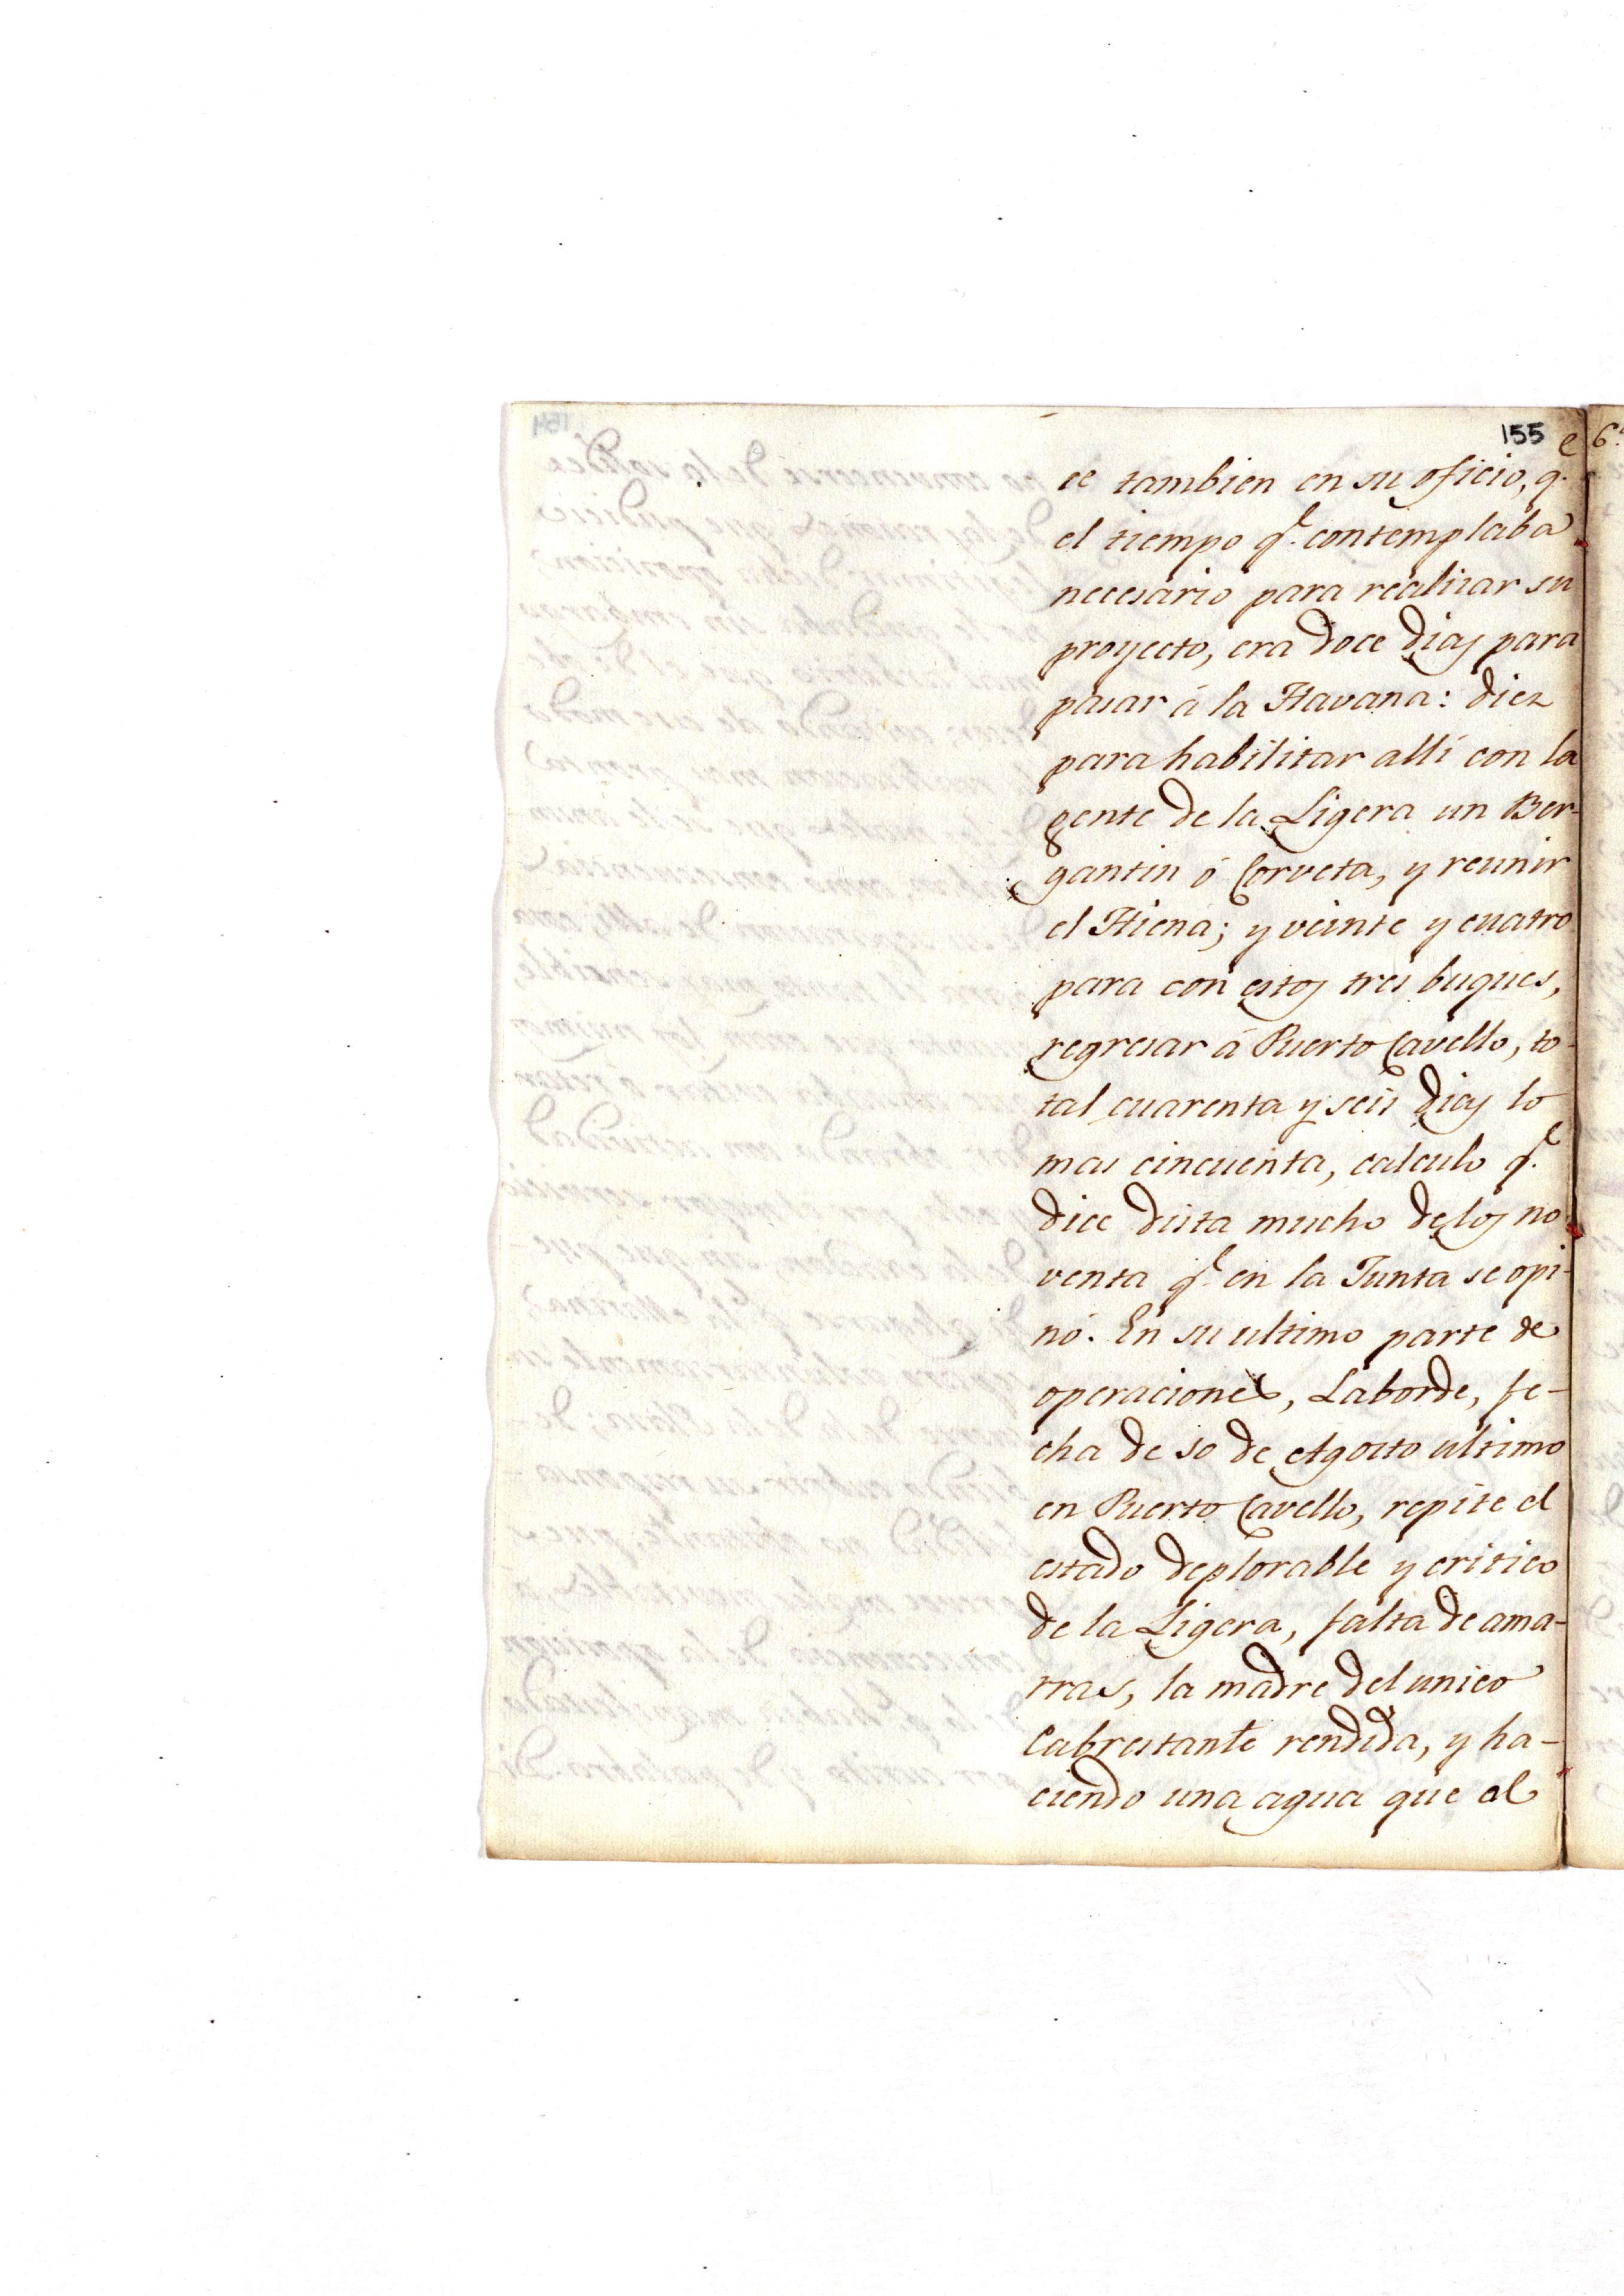 155
ce tambien en su oficio, q.e
el tiempo q.e contemplaba
necesario para realizar su
proyecto, era doce dias para
pasar á la Havana: diez
para habilitar allí con la
gente de la Ligera un Ber-
gantin ó Corveta, y reunir
el Hiena; y veinte y cuatro
para con estos tres buques,
regresar á Puerto Cavello, to-
tal cuarenta y seis dias lo
mas cincuenta, calculo q.e
dice dista mucho de los no-
venta q.e en la Junta se opi-
nó. En su ultimo parte de
operaciones, Laborde, fe-
cha de 10 de Agosto ultimo
en Puerto Cavello, repite el
estado deplorable y critico
de la Ligera, falta de ama-
rras, la madre del unico
Cabrestante rendida, y ha-
ciendo una agua que al